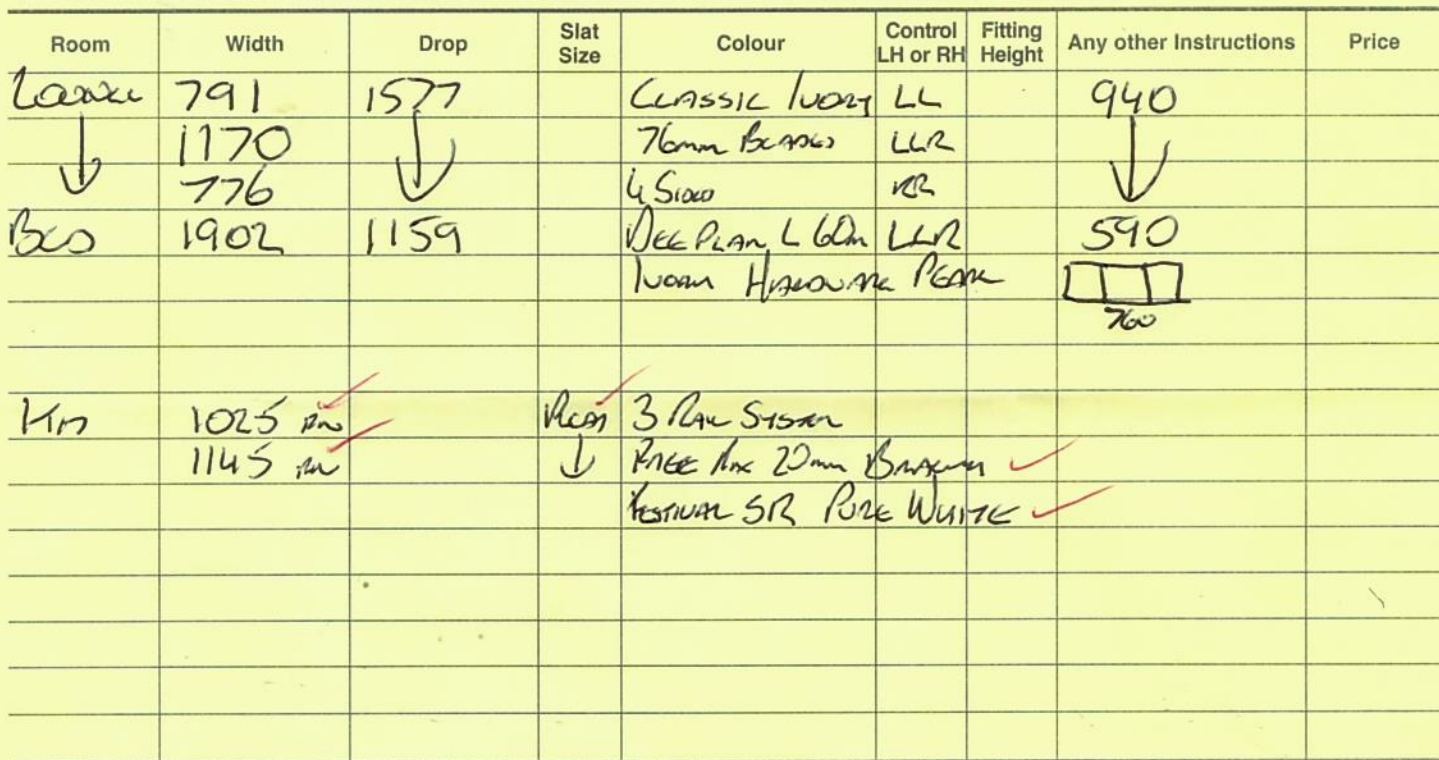 Room Width Drop Slat Size Colour Control LH or RH Fitting Height Any other Instructions Price
791 1577 CLASSIC IVORY LL 940
1170 76mm BLADES LLR
776 4 SIDED RR
BED 1902 1159 L 60m LLR 590
HARDWARE PEARL
760
Kit 1025 3 RAIL SYSTEM
1145 FREE 20mm
FESTIVAL SR PURE WHITE